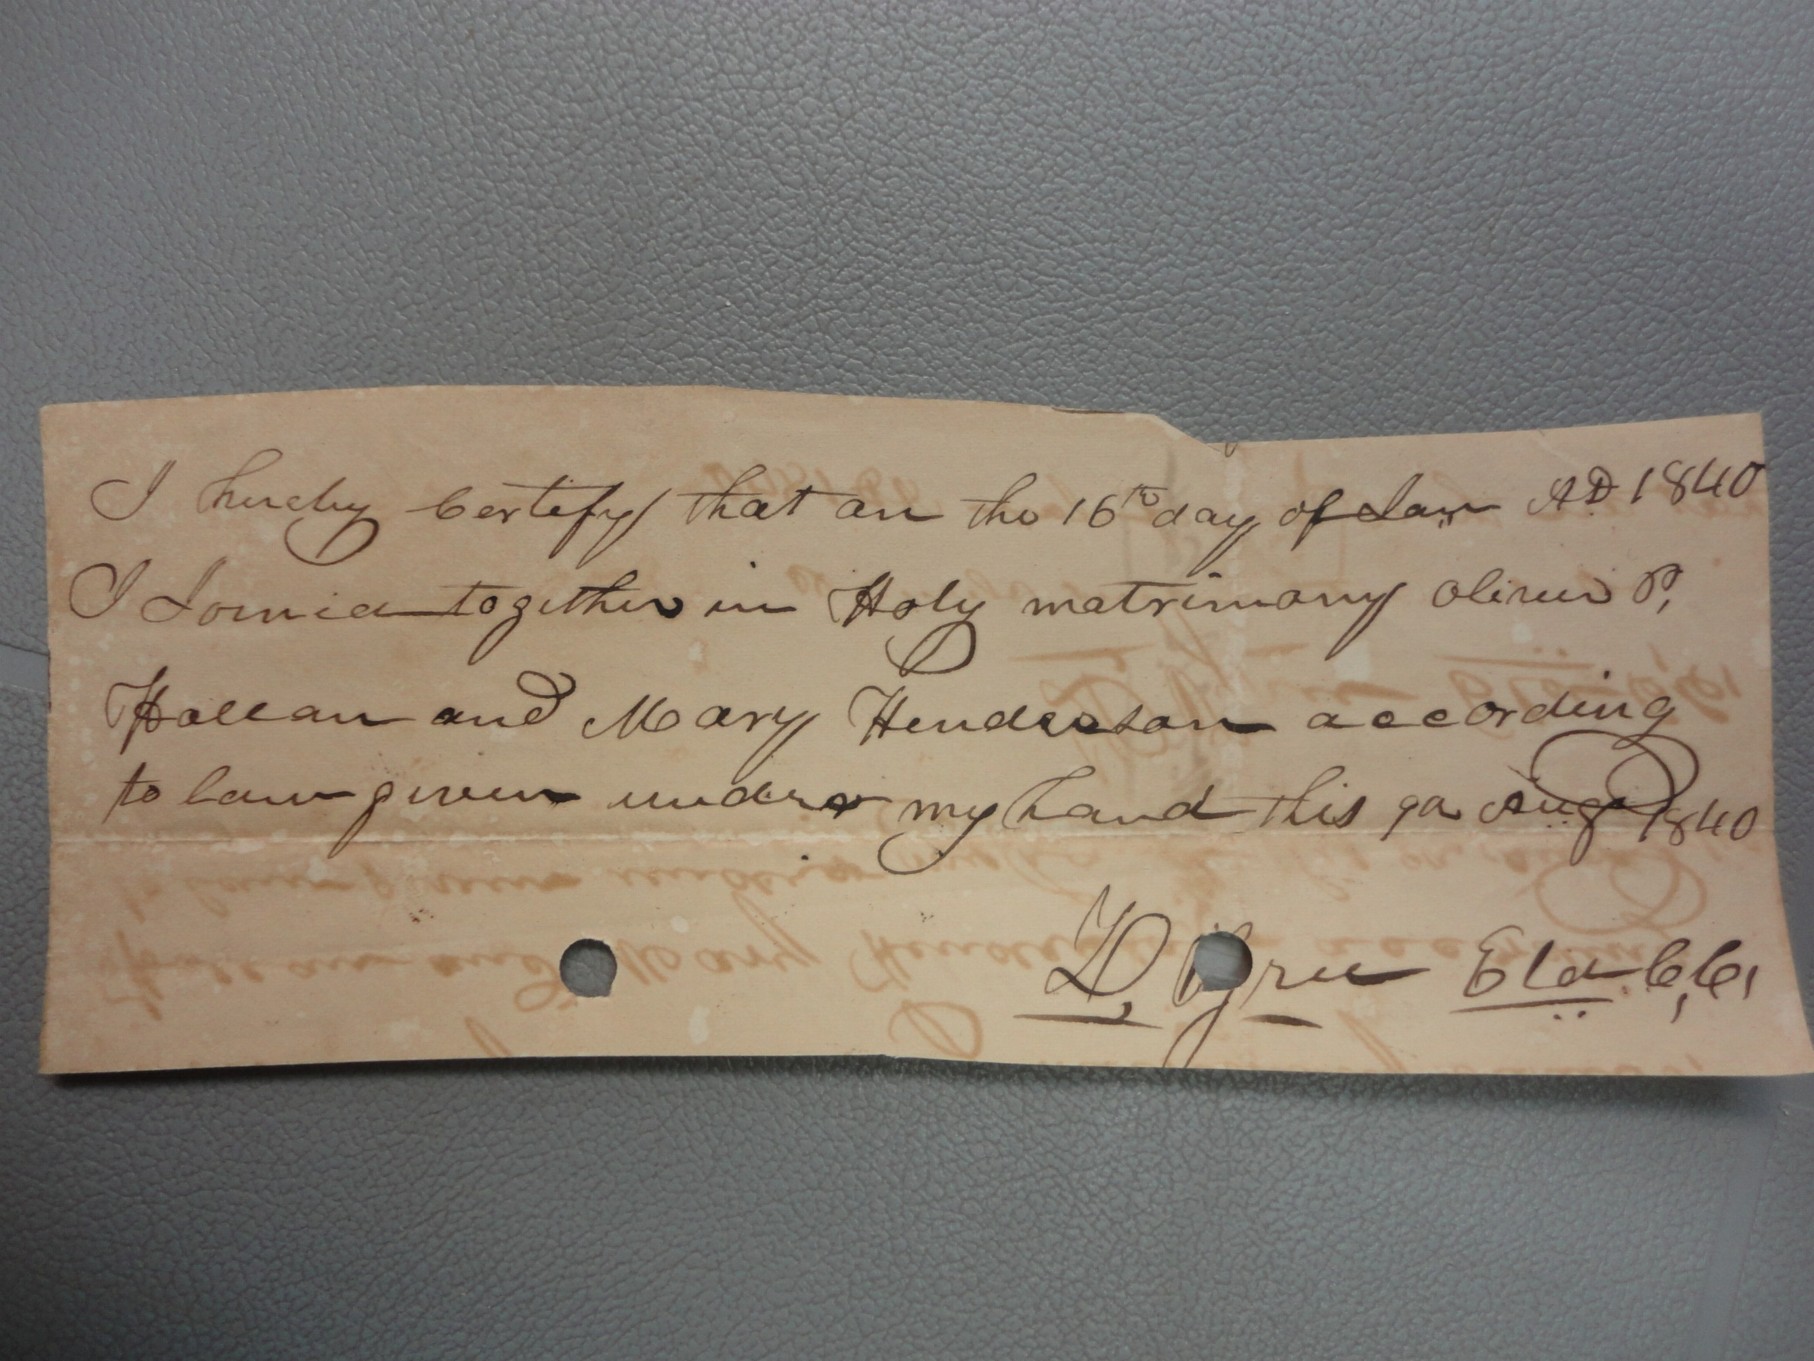 I hereby Certify that on the 16th day of Jan AD 1840
I Joined together in Holy matrimony Oliver P.
Hallan and Mary Henderson according
to law given under my hand this Aug 1840
D. Eld C. C.